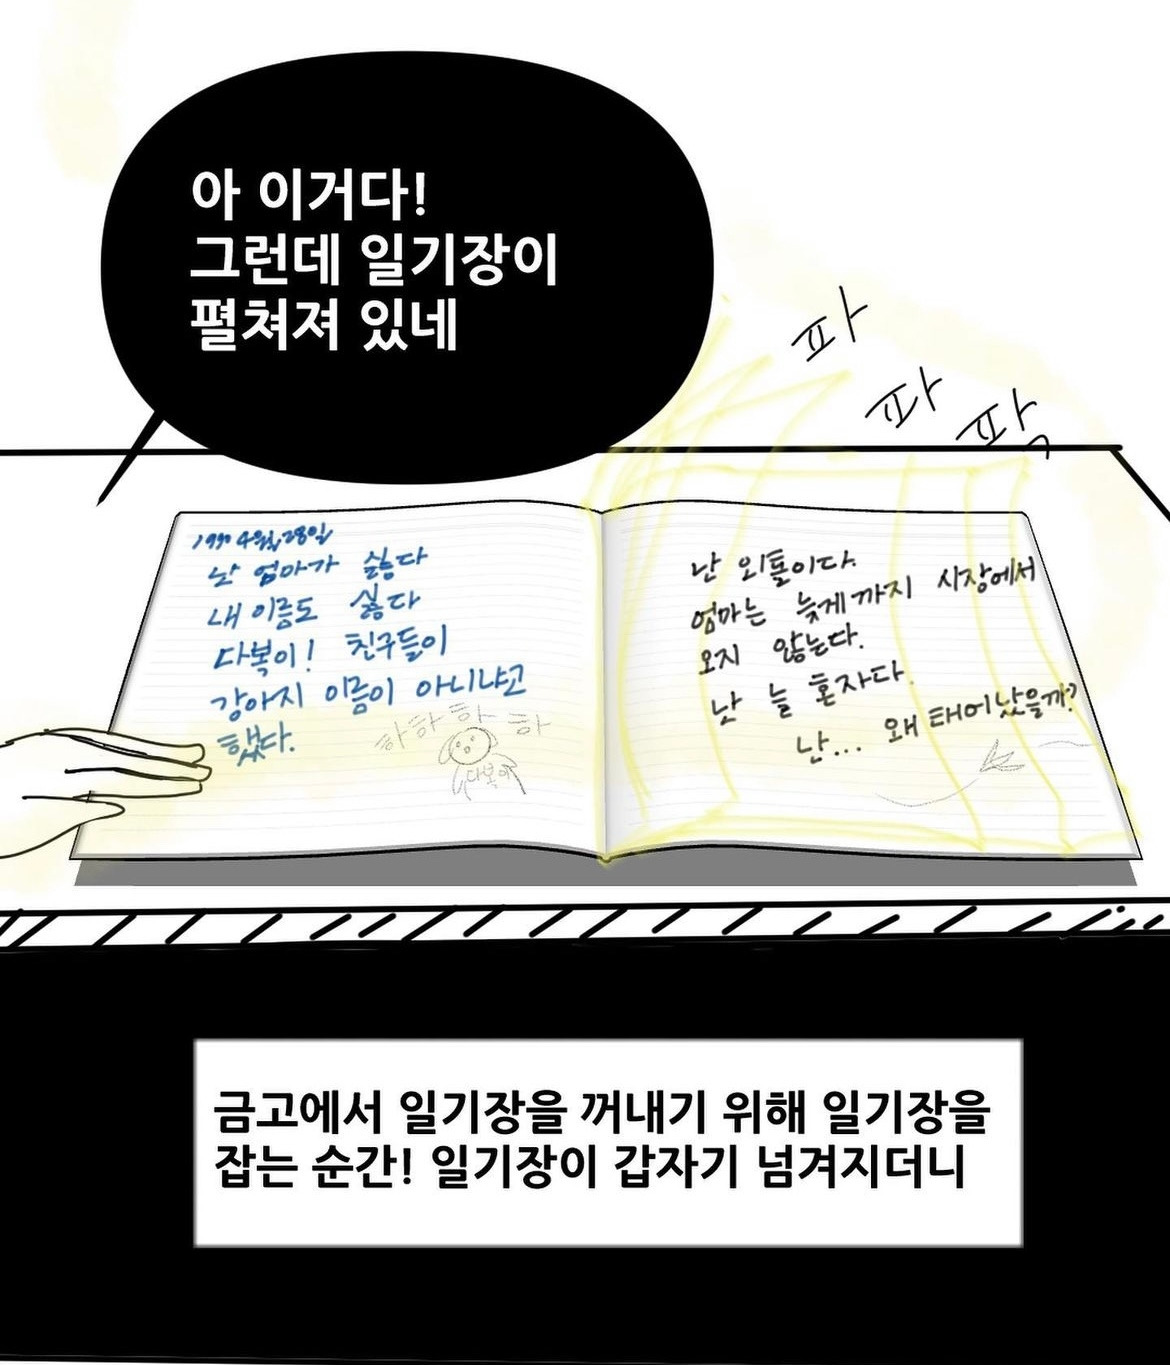 아 이거다!
그런데 일기장이
펼쳐져 있네
파
파
팍
1990 4월 28일
난 엄마가 싫다
내 이름도 싫다
다복이! 친구들이
강아지 이름이 아니냐고
했다.
하하하하
다복이
난 외톨이다.
엄마는 늦게까지 시장에서
오지 않는다.
난 늘 혼자다.
난... 왜 태어났을까?
금고에서 일기장을 꺼내기 위해 일기장을
잡는 순간! 일기장이 갑자기 넘겨지더니